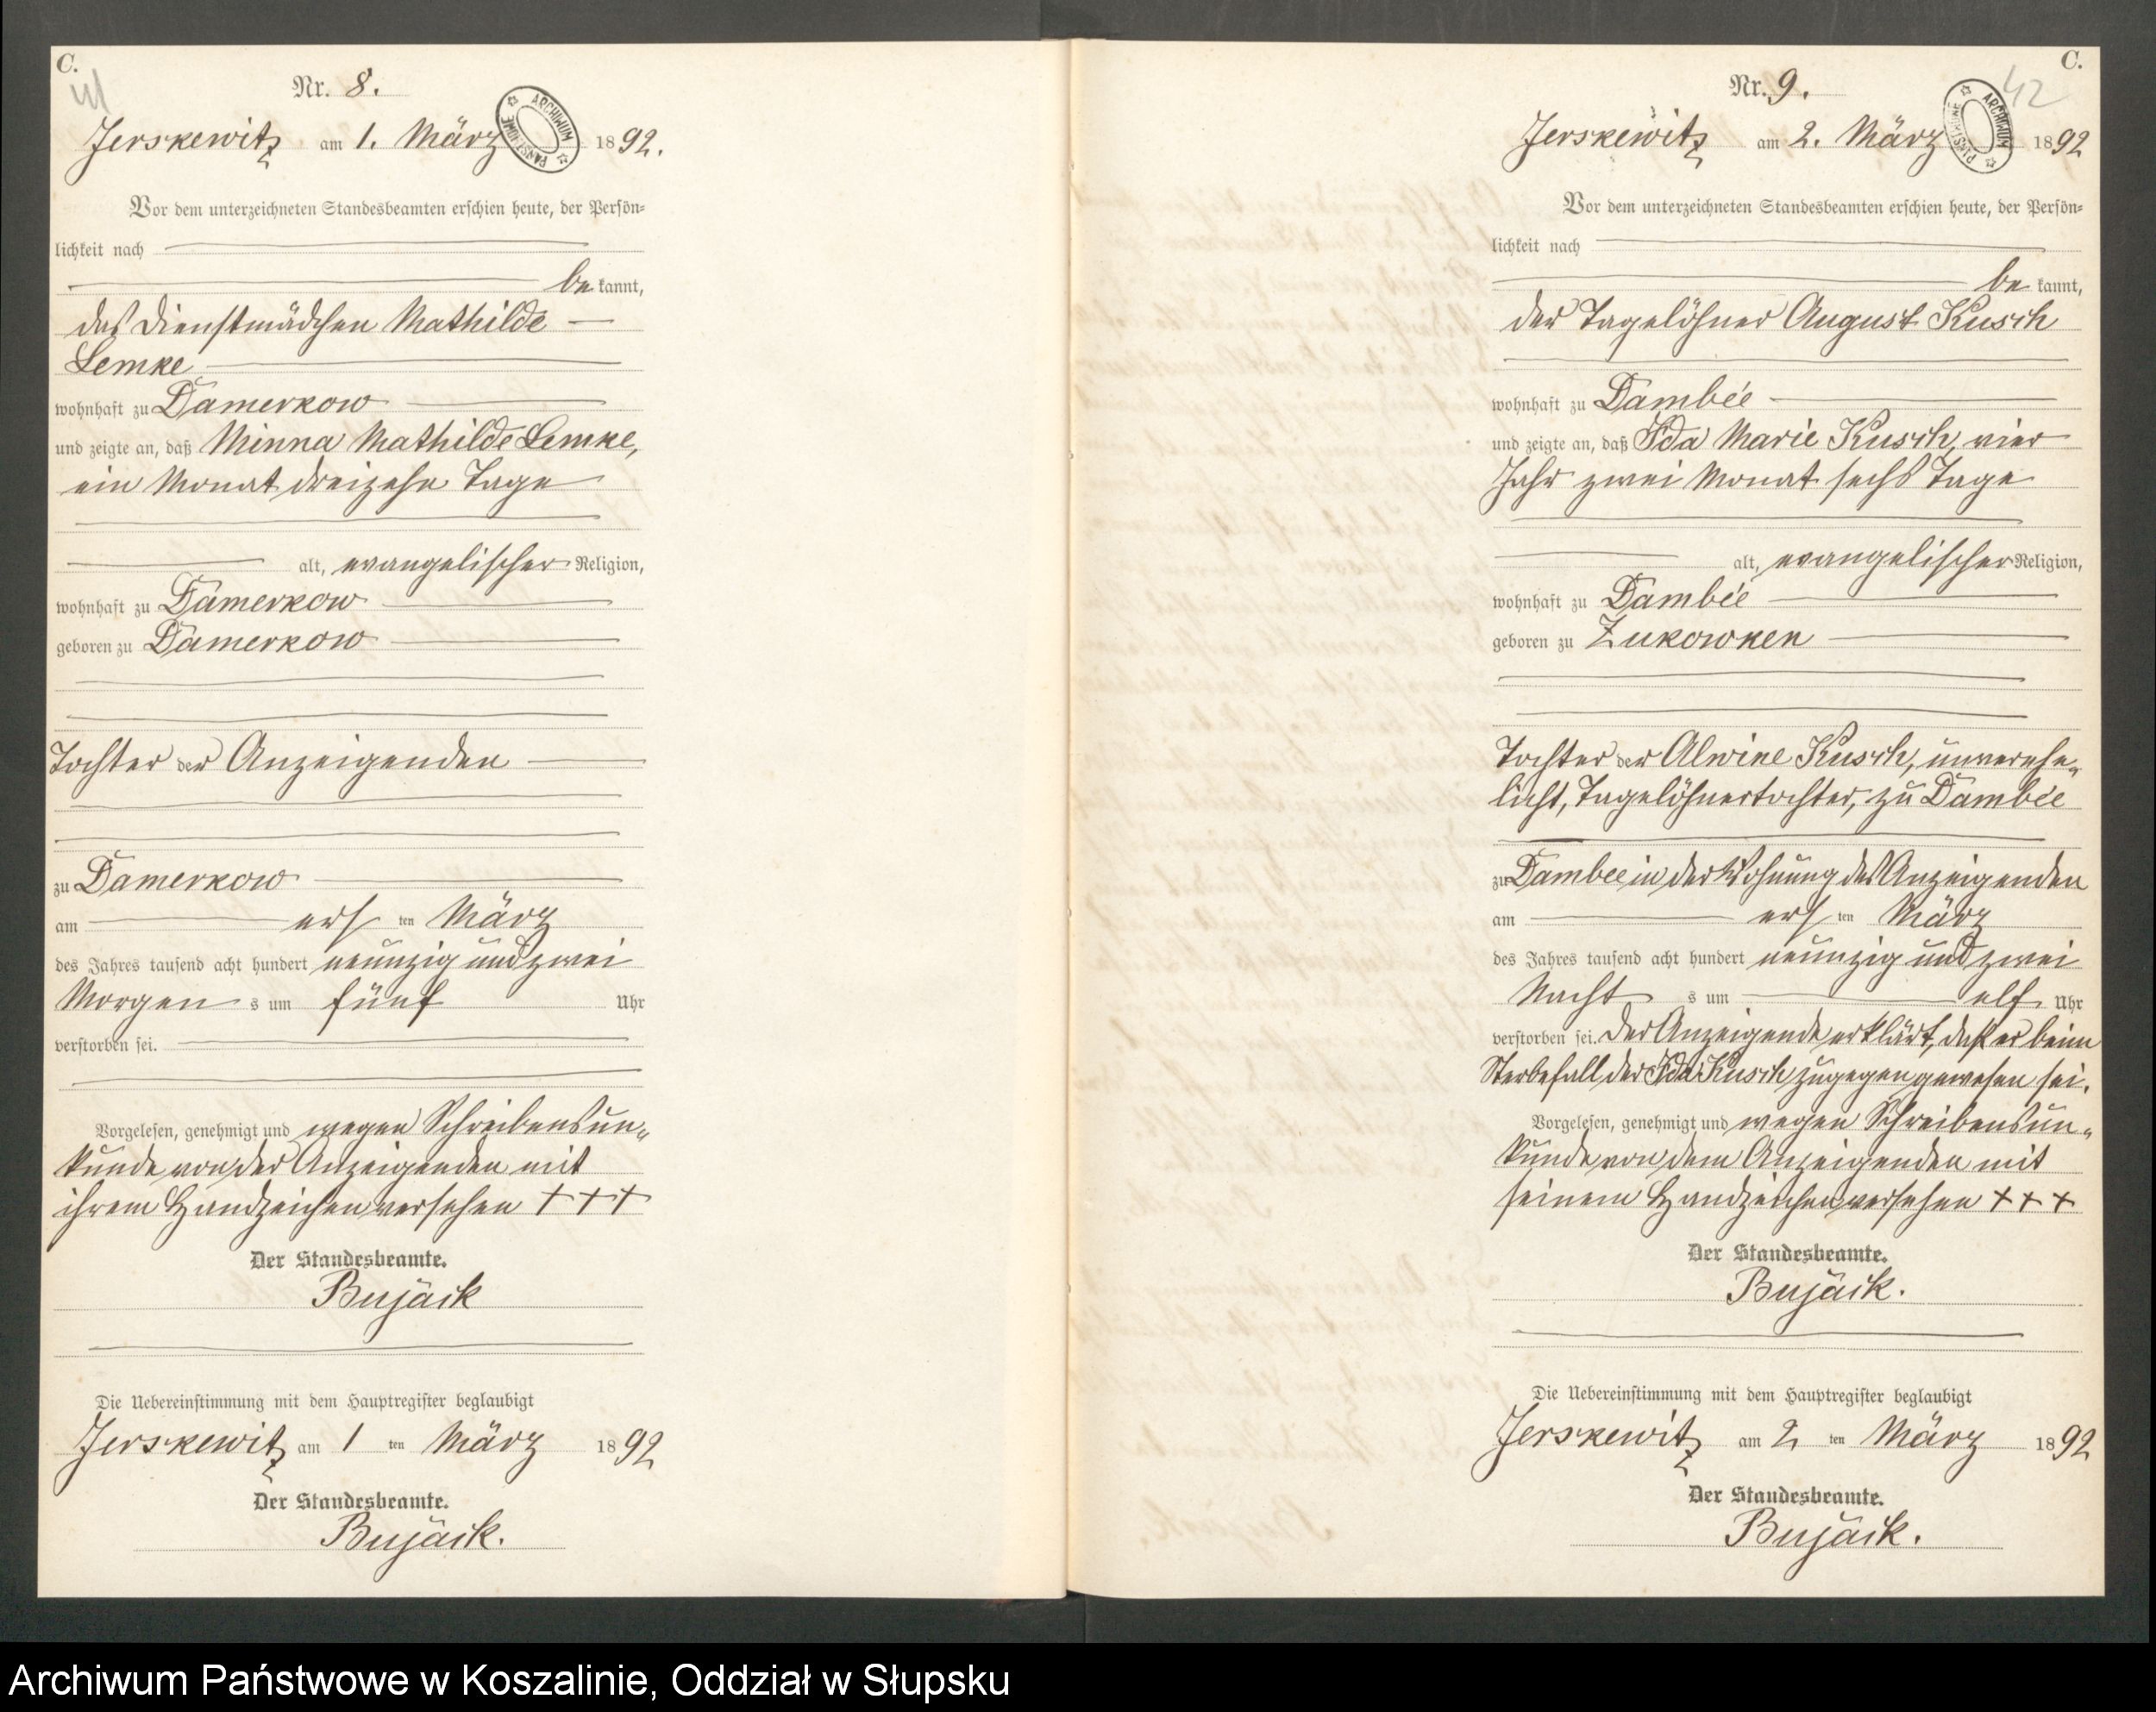 C.
41
Nr. 8.
Jerskewitz am 1. März 1892.
ARCHIWUM PAŃSTWOWE
Vor dem unterzeichneten Standesbeamten erschien heute, der Persön=
lichkeit nach
be kannt,
das Dienstmädchen Mathilde
Lemke
wohnhaft zu Damerkow
und zeigte an, daß Minna Mathilde Lemke,
ein Monat dreizehn Tage
alt, evangelischer Religion,
wohnhaft zu Damerkow
geboren zu Damerkow
Tochter der Anzeigenden
zu Damerkow
am ers ten März
des Jahres tausend acht hundert neunzig und zwei
Morgen s um fünf Uhr
verstorben sei.
Vorgelesen, genehmigt und wegen Schreibensun„
kunde von der Anzeigenden mit
ihrem Handzeichen versehen + + +
Der Standesbeamte.
Bujack
Die Uebereinstimmung mit dem Hauptregister beglaubigt
Jerskewitz am 1 ten März 1892
Der Standesbeamte.
Bujack.
C.
42
Nr. 9.
Jerskewitz am 2. März 1892
ARCHIWUM PAŃSTWOWE
Vor dem unterzeichneten Standesbeamten erschien heute, der Persön=
lichkeit nach
be kannt,
der Tagelöhner August Kusch
wohnhaft zu Dambée
und zeigte an, daß Ida Marie Kusch, vier
Jahr zwei Monat sechs Tage
alt, evangelischer Religion,
wohnhaft zu Dambée
geboren zu Zukowken
Tochter der Alwine Kusch, unverehe„
licht, Tagelöhnertochter, zu Dambée
zu Dambee in der Wohnung des Anzeigenden
am ers ten März
des Jahres tausend acht hundert neunzig und zwei
Nacht s um elf Uhr
verstorben sei. Der Anzeigende erklärt, daß er beim
Sterbefall der Ida Kusch zugegen gewesen sei.
Vorgelesen, genehmigt und wegen Schreibensun„
kunde von dem Anzeigenden mit
seinem Handzeichen versehen + + +
Der Standesbeamte.
Bujack.
Die Uebereinstimmung mit dem Hauptregister beglaubigt
Jerskewitz am 2 ten März 1892
Der Standesbeamte.
Bujack.
Archiwum Państwowe w Koszalinie, Oddział w Słupsku